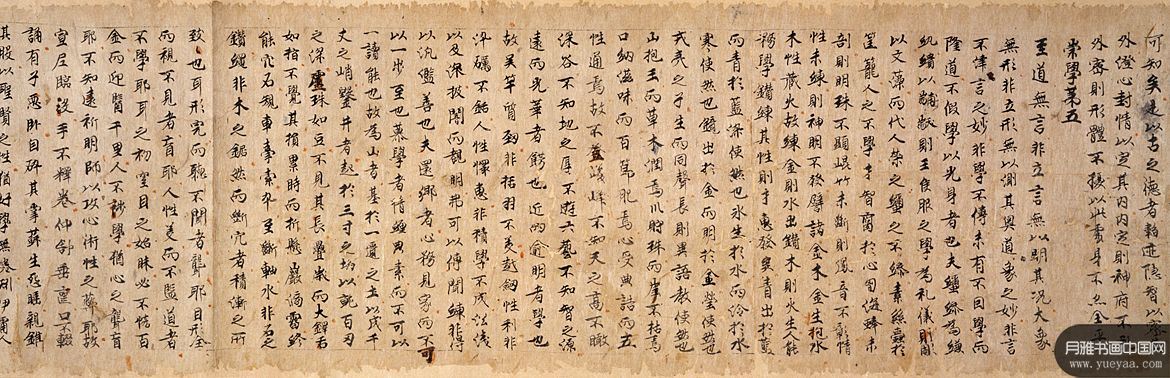 何知矣是以古之德者韜迹隱智以密其
外澄心封情以定其內內定則神府不亂
外密則形體不擾以此處身不亦全乎
崇學第五
至道無言非立言無以明其況大象
無形非立形無以測其奧道象之妙非言
不津言之妙非學不傳未有不因學而
隆道不假學以光身者也夫繭繅為縑
紈繢以黼黻則王侯服之學為礼儀則
以文藻而代人榮之繭之不繅素絲蠹於
筐籠人之不學才智腐於心胸後蜯未
剖則明珠不顯崐竹未斷則鳳音不彰情
性未練則神明不發譬諸金木金性苞水
木性藏火故練金則水出鑽木則火生人能
務學鑽練其性則才惠發矣青出於藍
而青於藍染使然也氷生於水而冷於水
寒使然也鏡出於金而明於金瑩使然也
戎夷之子生而同聲長則異語教使然也
山抱玉而草木潤焉川貯珠而岸不枯焉
口納滋味而百節肥焉心受典誥而五
性通焉故不登峻岭不知天之高不瞰
深谷不知地之厚不遊六藝不知智之深
遠而光華者飾也近而愈明者學也
故吳竿質勁非括羽不美越劍性利非
淬礪不銛人性懁惠非積學不成沿淺
以及深披闇而覩明弗可以傳聞練非得
以汎濫善也夫還鄉者心務見家而不可
以一步至也慕學者情纏典素而不可以
一讀能也故為山者基於一簣之土以成千
丈之峭鑿井者起於三寸之坎以就百刃
之深靈珠如豆不見其長疊歲而大鐸舌
如指不覺其損累時而折懸巖滴霤終
能穴石規車牽索卒至斷軸水非石之
鑽繩非木之鋸然而斷穴者積漸之所
致也耳形完而聽不聞者聾耶目形全
而視不見者盲耶人性美而不監道者
不學耶耳之初窒目之始昧必不恡百
金而迎醫千里人不涉學猶心之聾盲
耶不知遠祈明師以攻心術性之蔽耶故
宣尼臨沒手不釋卷仲舒垂卒口不輟
誦有子惡卧自焠其掌蘇生患睡親錐
其股以聖賢之性猶好學無惓矧伊庸人
月雅书画中国网
www.yueyaa.com